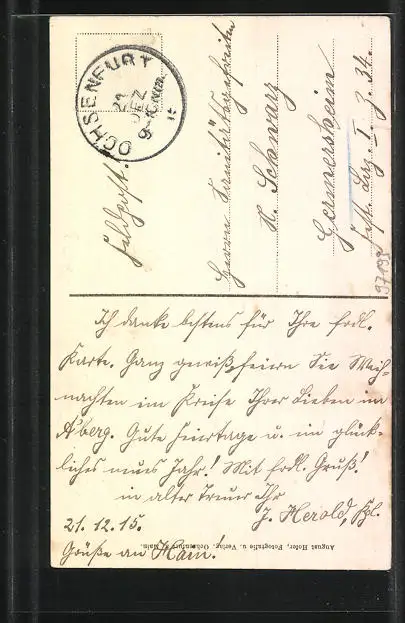 OCHSENFURT
21
DEZ
Feldpost.
Herrn Sanitätsgefreiten
K. Schwarz
Germersheim
Fest. Laz. I. Z. 34.
97199
Ich danke bestens für Ihre frdl.
Karte. Ganz gewiß feiern Sie Weih-
nachten im Kreise Ihrer Lieben in
A'berg. Gute Feiertage u. ein glück-
liches neues Jahr! Mit frdl. Gruß!
in alter Treue Ihr
J. Herold, Kpl.
21.12.15.
Grüße an Main!
August Hofer, Fotografie u. Verlag, Ochsenfurt a. Main.